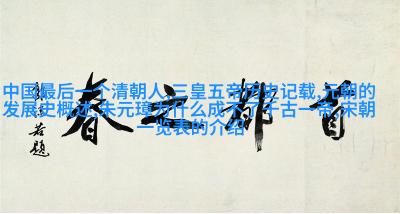 中国最后一个清朝人,三皇五帝历史记载,元朝的
发展史概述,朱元璋为什么成不了千古一帝,宋朝
一览表的介绍
首都之春
郭沫若题